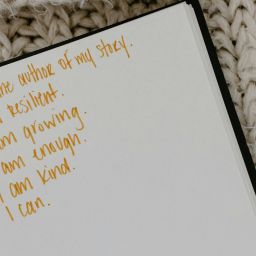 the author of my story.
resilient.
am growing.
am enough.
I am kind.
I can.